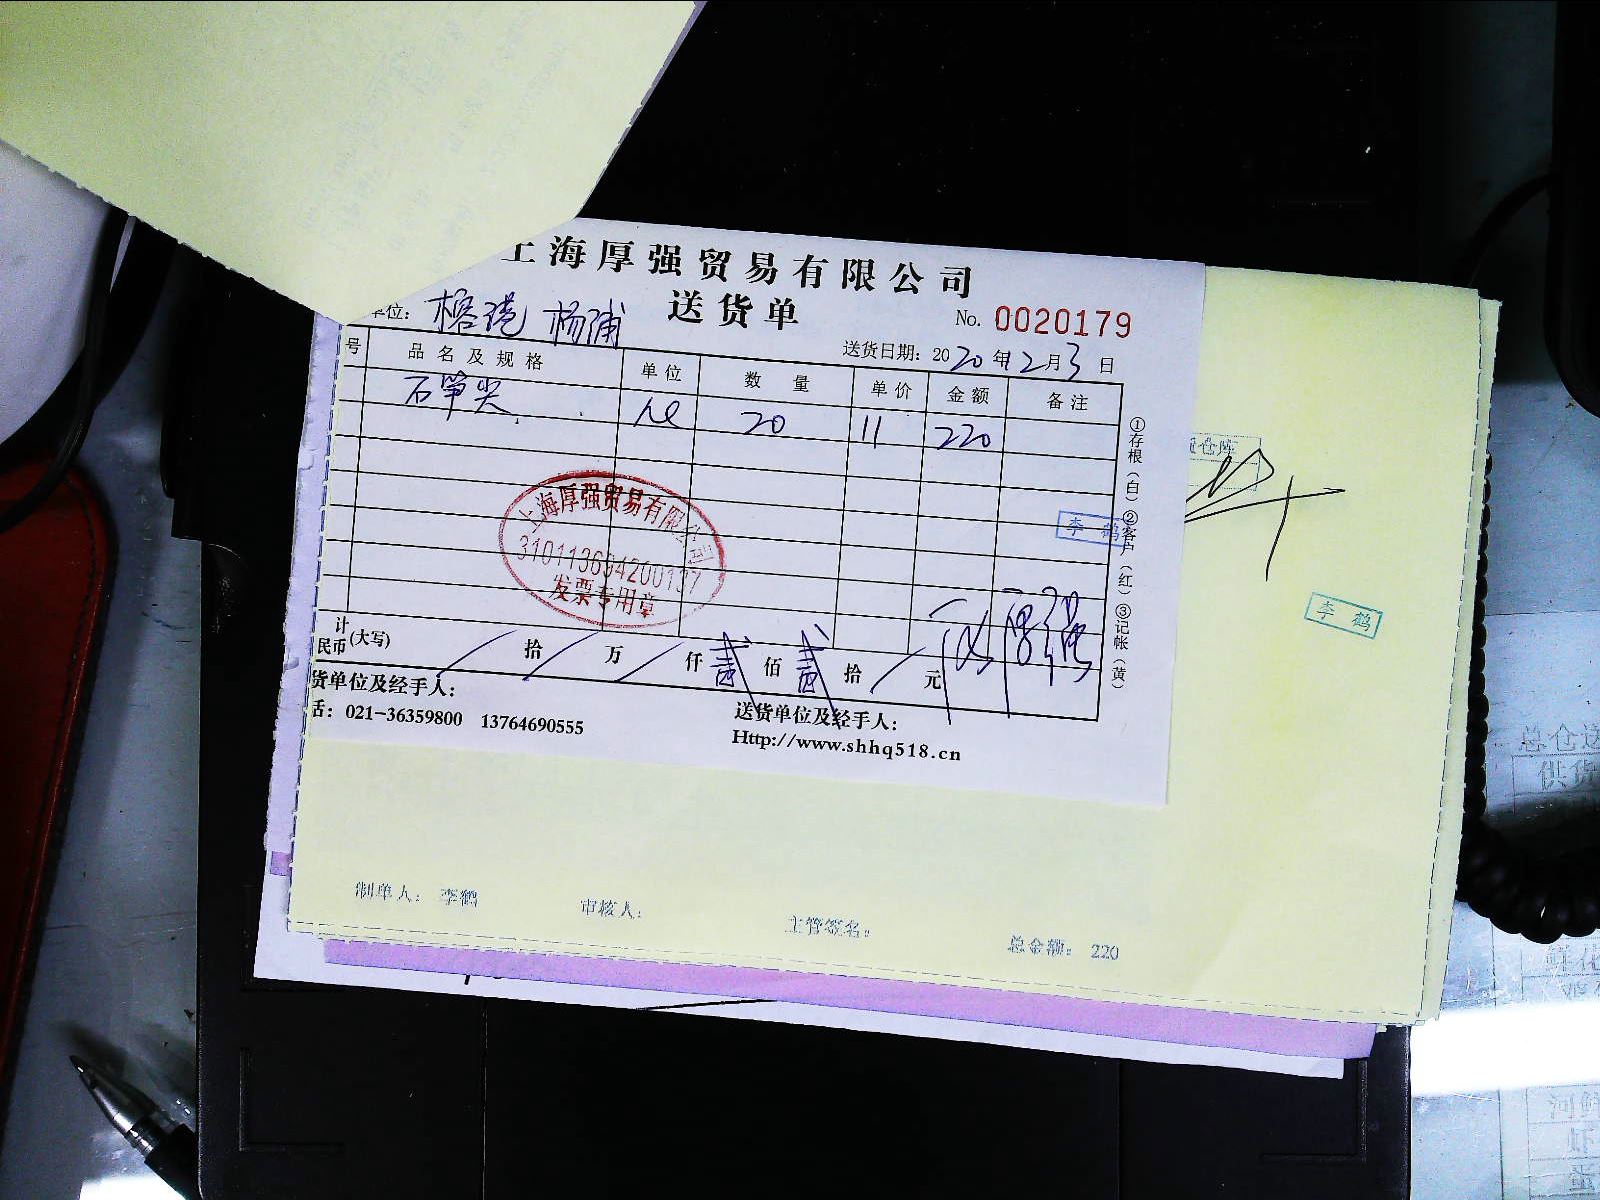 上海厚强贸易有限公司
送货单
单位: 榕港 杨浦
No. 0020179
送货日期: 2020年12月3日
号 品名及规格 单位 数量 单价 金额 备注
石笋尖 20 11 220
①存根(白)②客户(红)③记帐(黄)
上海厚强贸易有限公司
310113694200137
发票专用章
李鹤
计
民币(大写) 拾 万 仟 贰 佰 贰 拾 元
货单位及经手人:
送货单位及经手人:
话: 021-36359800 13764690555
Http://www.shhq518.cn
仓库
李鹤
制单人: 李鹤 审核人: 主管签名: 总金额: 220
总仓送
供货
鲜花
河鲜
虾
蛋